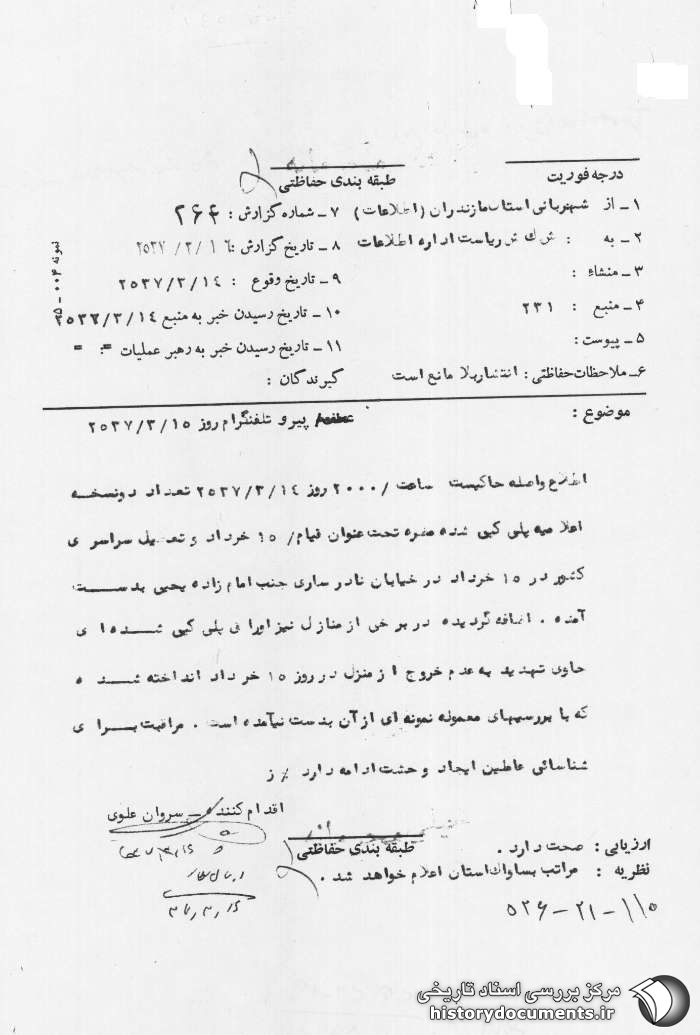 درجه فوریت
طبقه بندی حفاظتی
۱ـ از شهربانی استان مازندران (اطلاعات)
۷ـ شماره گزارش : ۲۶۴
۲ـ به : ش ك ش ریاست اداره اطلاعات
۸ ـ تاریخ گزارش : ۲۵۳۷/۳/۱۶
۳ـ منشاء :
۹ـ تاریخ وقوع : ۲۵۳۷/۳/۱٤
۴ـ منبع : ۲۳۱
۱۰ ـ تاریخ رسیدن خبر به منبع ۲۵۳۷/۳/۱٤
۵ـ پیوست :
۱۱ ـ تاریخ رسیدن خبر به رهبر عملیات = : =
۶ـ ملاحظات حفاظتی : انتشار بلا مانع است
گیرندگان :
نمونه ۰۰۴ ـ ۳۵
موضوع :
پیرو تلفنگرام روز ۲۵۳۷/۳/۱۵
اطلاع واصله حاکیست ساعت /۲۰۰۰ روز ۲۵۳۷/۳/۱٤ تعداد دونسخه
اعلامیه پلی کپی شده مضره تحت عنوان قیام/ ۱۵ خرداد و تعطیل سراسر ی
کشور در ۱۵ خرداد در خیابان نادر ساری جنب امام زاده یحیی بدســـت
آمده . اضافه گردیده در برخی از منازل نیز اوراق پلی کپی شـــده ا ی
حاوی تهدید به عدم خروج از منزل در روز ۱۵ خرداد انداخته شـــد ه
که با بررسیهای معموله نمونه ای از آن بدست نیامده است . مراقبت بـــرا ی
شناسائی عاملین ایجاد و حشت ادامه دارد ٪ ز
اقدام کننده ـ سروان علوی
طبقه بندی حفاظتی
ارزیابی : صحت دارد .
نظریه : مراتب بساواك استان اعلام خواهد شد .
۳۷٫۳٫۱۶
۱۱۰ - ۲۱ - ۵۲۶
مرکز بررسی اسناد تاریخی
historydocuments.ir